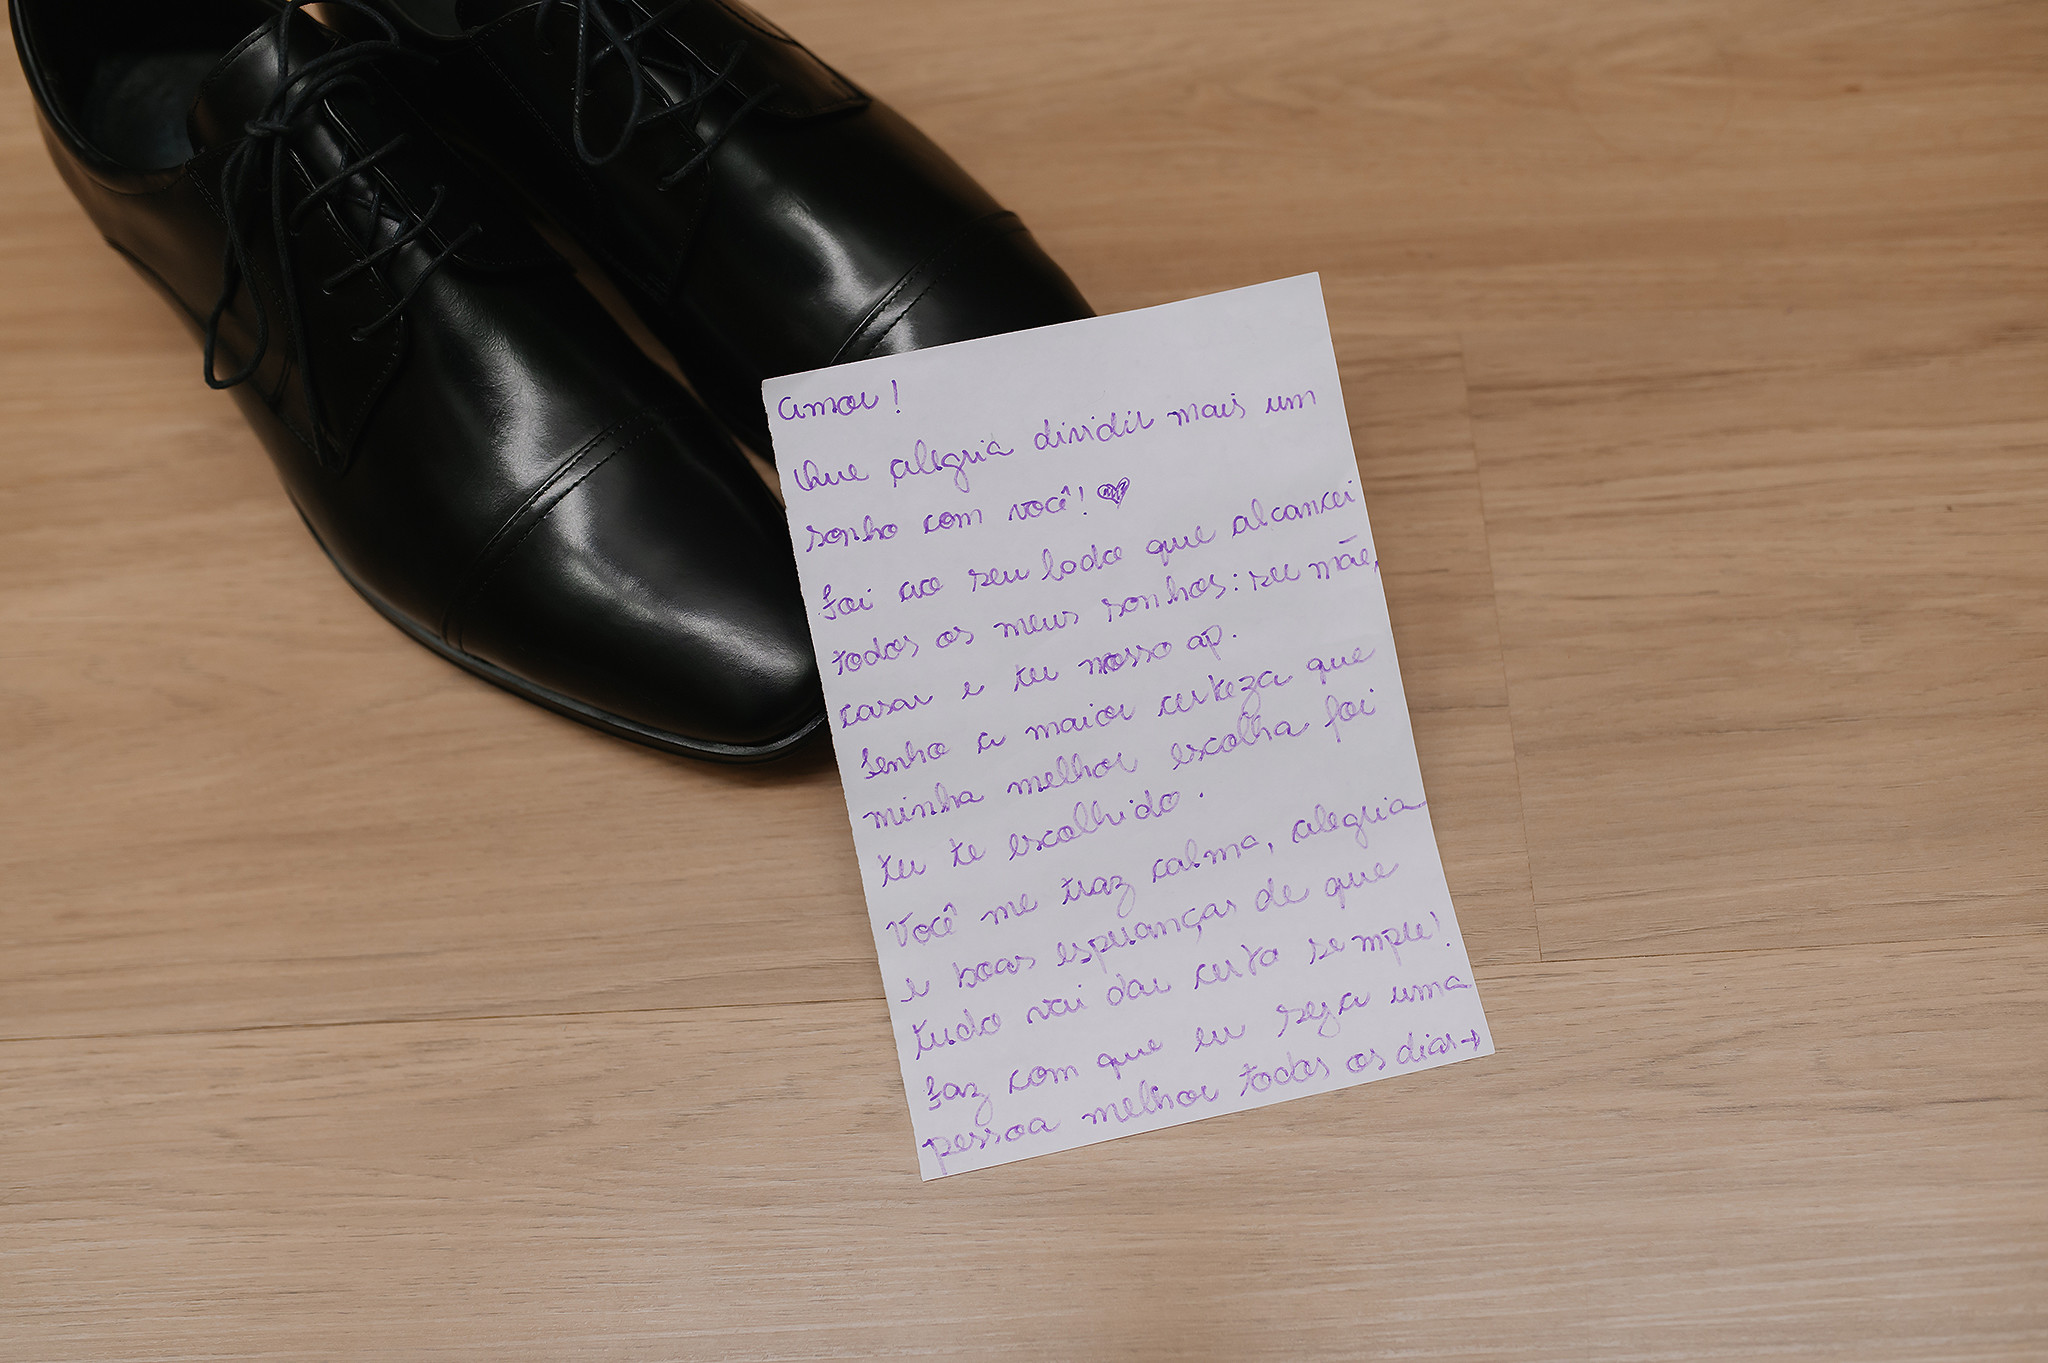 Amor!
Que alegria dividir mais um
sonho com você! ♥
Foi ao seu lado que alcancei
todos os meus sonhos: ser mãe,
casar e ter nosso ap.
Tenho a maior certeza que
minha melhor escolha foi
ter te escolhido.
Você me traz calma, alegria
e boas esperanças de que
tudo vai dar certo sempre!
Faz com que eu seja uma
pessoa melhor todos os dias →